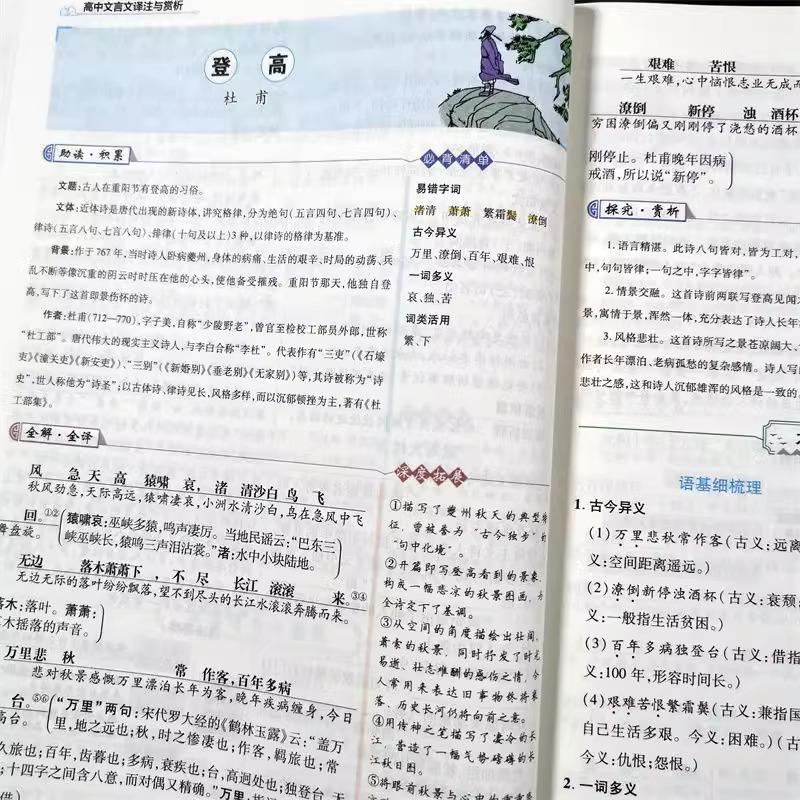 高中文言文译注与赏析
登高
杜甫
助读·积累
文题:古人在重阳节有登高的习俗。
文体:近体诗是唐代出现的新诗体,讲究格律,分为绝句(五言四句、七言四句)、
律诗(五言八句、七言八句)、排律(十句及以上)3种,以律诗的格律为基准。
背景:作于767年,当时诗人卧病夔州,身体的病痛、生活的艰辛、时局的动荡、兵
乱不断等像沉重的阴云时时压在他的心头,使他备受摧残。重阳节那天,他独自登
高,写下了这首即景伤怀的诗。
作者:杜甫(712—770),字子美,自称“少陵野老”,曾官至检校工部员外郎,世称
“杜工部”。唐代伟大的现实主义诗人,与李白合称“李杜”。代表作有“三吏”(《石壕
吏》《潼关吏》《新安吏》)、“三别”(《新婚别》《垂老别》《无家别》)等,其诗被称为“诗
史”,世人称他为“诗圣”;以古体诗、律诗见长,风格多样,而以沉郁顿挫为主,著有《杜
工部集》。
必背清单
易错字词
渚清 萧萧 繁霜鬓 潦倒
古今异义
万里、潦倒、百年、艰难、恨
一词多义
哀、独、苦
词类活用
繁、下
全解·全译
风 急天高 猿啸哀,渚 清沙白鸟 飞
秋风劲急,天际高远,猿啸凄哀,小洲水清沙白,鸟在急风中飞
回。①②
舞盘旋。
猿啸哀:巫峡多猿,鸣声凄厉。当地民谣云:“巴东三
峡巫峡长,猿鸣三声泪沾裳。”渚:水中小块陆地。
无边 落木萧萧下,不尽 长江滚滚 来。③④
无边无际的落叶纷纷飘落,望不到尽头的长江水滚滚奔腾而来。
落木:落叶。萧萧:
草木摇落的声音。
万里悲 秋 常 作客,百年多病
悲对秋景感慨万里漂泊长年为客,晚年疾病缠身,今日
台。⑤⑥
高台。
“万里”两句:宋代罗大经的《鹤林玉露》云:“盖万
里,地之远也;秋,时之惨凄也;作客,羁旅也;常
久旅也;百年,齿暮也;多病,衰疾也;台,高迥处也;独登台,无
;十四字之间含八意,而对偶又精确。”万里:
深度拓展
①描写了夔州秋天的典型特
征,曾被誉为“古今独步”的
“句中化境”。
②开篇即写登高看到的景象,
构成一幅悲凉的秋景图画,为
全诗定下了基调。
③从空间的角度描绘出壮阔、
萧索的秋景,同时抒发了时光
易逝、壮志难酬的感伤之情,今
人常用来表达旧事物终将衰
落、历史长河仍将向前之意。
④用传神之笔描写了凄冷的长
江,营造了一幅气势磅礴的长
江秋日图。
⑤将眼前秋景与心中的
艰难 苦恨
一生艰难,心中恼恨志业无成而
潦倒 新停 浊 酒杯
穷困潦倒偏又刚刚停了浇愁的酒杯
刚停止。杜甫晚年因病
戒酒,所以说“新停”。
探究·赏析
1.语言精湛。此诗八句皆对,皆为工对,
中,句句皆律;一句之中,字字皆律”。
2.情景交融。这首诗前两联写登高见闻
景,寓情于景,浑然一体,充分表达了诗人长年
3.风格悲壮。这首诗所写之景苍凉阔大、
作者长年漂泊、老病孤愁的复杂感情。诗人写
悲壮之感,这和诗人沉郁雄浑的风格是一致的。
语基细梳理
1.古今异义
(1)万里悲秋常作客(古义:远离
义:空间距离遥远。)
(2)潦倒新停浊酒杯(古义:衰颓
义:一般指生活贫困。)
(3)百年多病独登台(古义:借指
义:100年,形容时间长。)
(4)艰难苦恨繁霜鬓(古义:兼指国
自己生活多艰。今义:困难。)(古
今义:仇恨;怨恨。)
2.一词多义